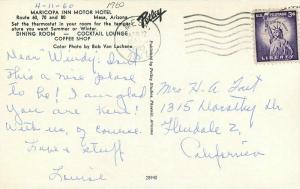 4-11-60
1960
MARICOPA INN MOTOR HOTEL
Route 60, 70 and 80 Mesa, Arizona
Set the thermostat in your room for the temperature you want Summer or Winter.
DINING ROOM — COCKTAIL LOUNGE
COFFEE SHOP
Color Photo by Bob Van Luchene
Petley
U.S. POSTAGE 3¢
LIBERTY
Dear Windy: Isn't
this a nice place
to be! I am glad
you are here!
With us, of course.
Love & stuff
Louise
Mrs H. A. Fast
1315 Dorothy Dr
Glendale 2,
California
28940